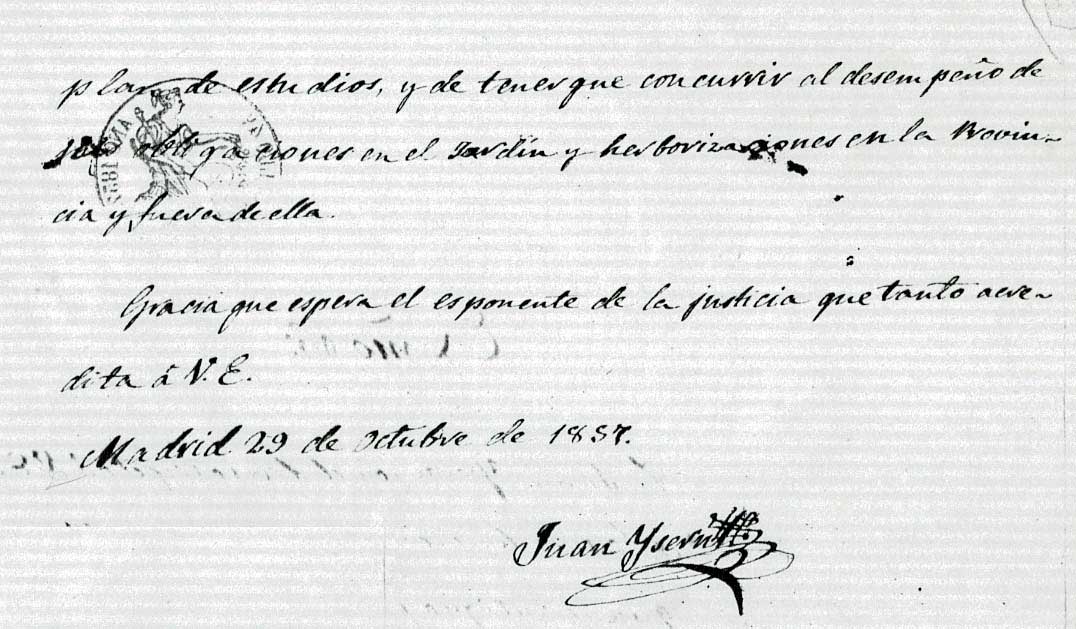 plan de estudios, y de tener que concurrir al desempeño de
sus obligaciones en el Jardin y herborizaciones en la Provin-
cia y fuera de ella.
Gracia que espera el esponente de la justicia que tanto acre-
dita á V. E.
Madrid 29 de Octubre de 1857.
Juan Ysern